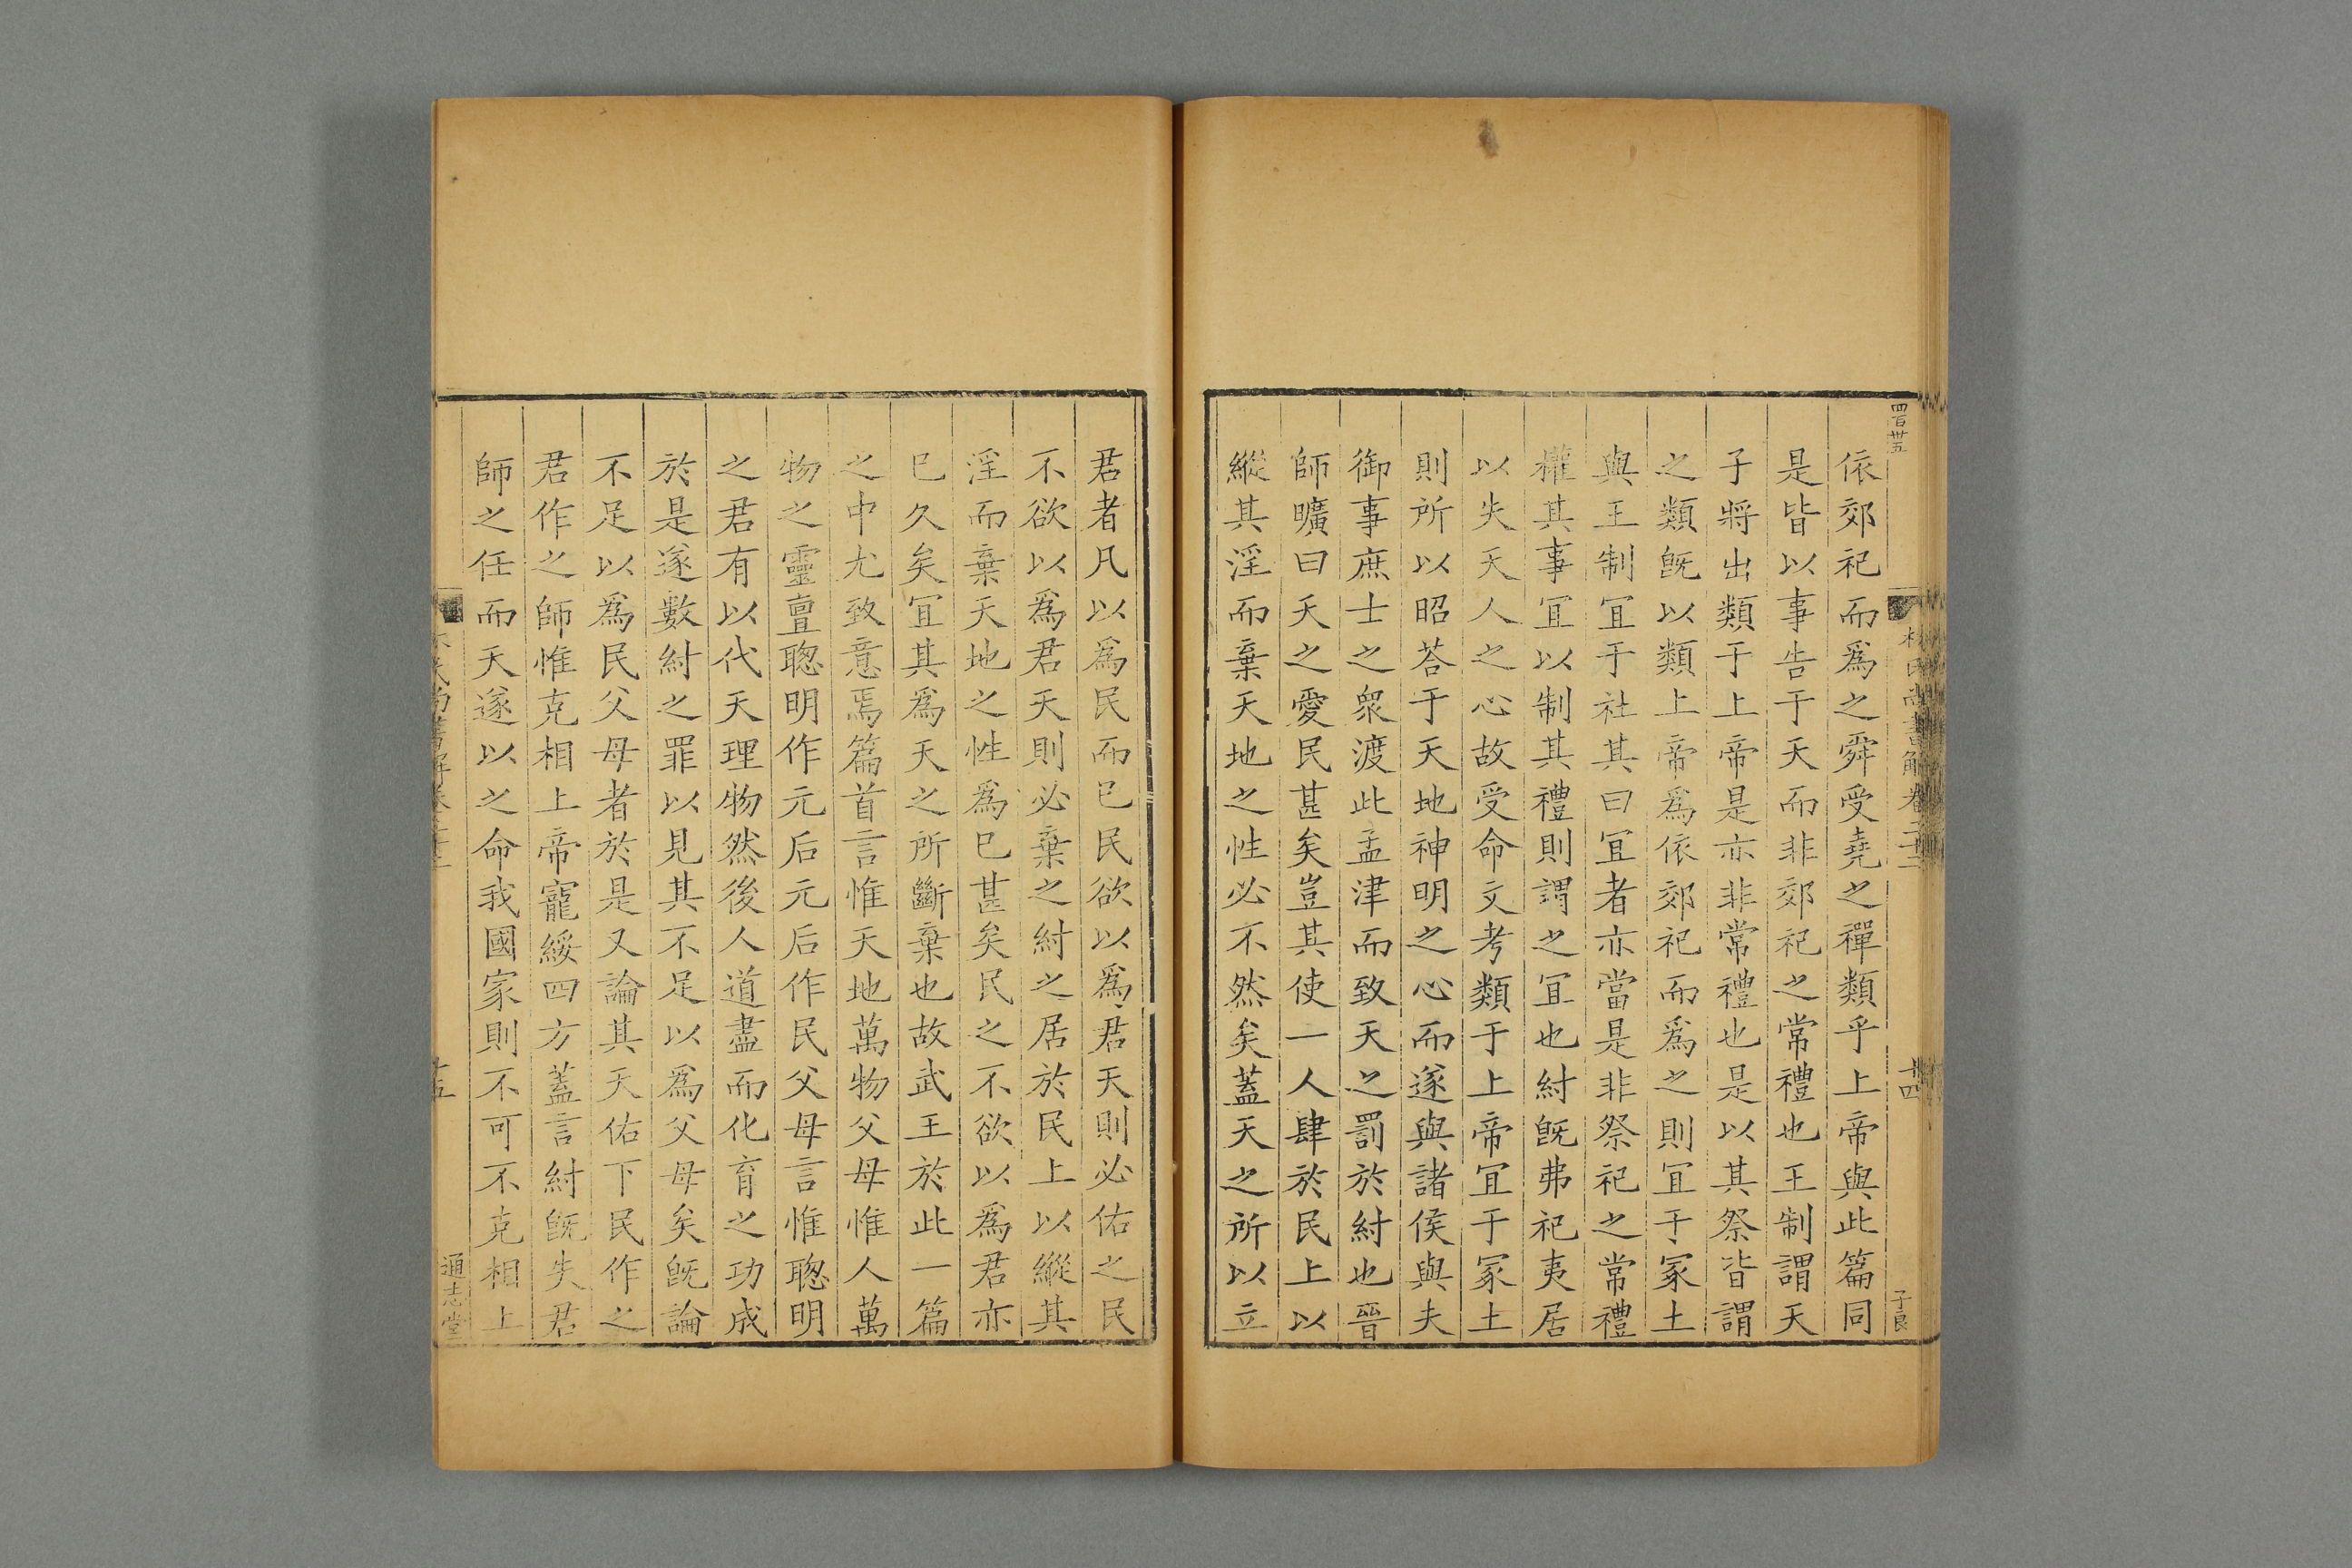 四百卅五
林氏尚書解卷二十二
十四
子良
依郊祀而爲之舜受堯之禪類乎上帝與此篇同
是皆以事告于天而非郊祀之常禮也王制謂天
子將出類于上帝是亦非常禮也是以其祭皆謂
之類旣以類上帝爲依郊祀而爲之則冝于冢土
與王制冝于社其曰冝者亦當是非祭祀之常禮
權其事冝以制其禮則謂之冝也紂旣弗祀夷居
以失天人之心故受命文考類于上帝冝于冢土
則所以昭荅于天地神明之心而遂與諸侯與夫
御事庶士之衆渡此孟津而致天之罰於紂也晉
師曠曰天之愛民甚矣豈其使一人肆於民上以
縱其淫而棄天地之性必不然矣蓋天之所以立
君者凡以爲民而已民欲以爲君天則必佑之民
不欲以爲君天則必棄之紂之居於民上以縱其
淫而棄天地之性爲已甚矣民之不欲以爲君亦
已久矣冝其爲天之所斷棄也故武王於此一篇
之中尤致意焉篇首言惟天地萬物父母惟人萬
物之靈亶聰明作元后元后作民父母言惟聰明
之君有以代天理物然後人道盡而化育之功成
於是遂數紂之罪以見其不足以爲父母矣旣論
不足以爲民父母者於是又論其天佑下民作之
君作之師惟克相上帝寵綏四方蓋言紂旣失君
師之任而天遂以之命我國家則不可不克相上
十五
通志堂